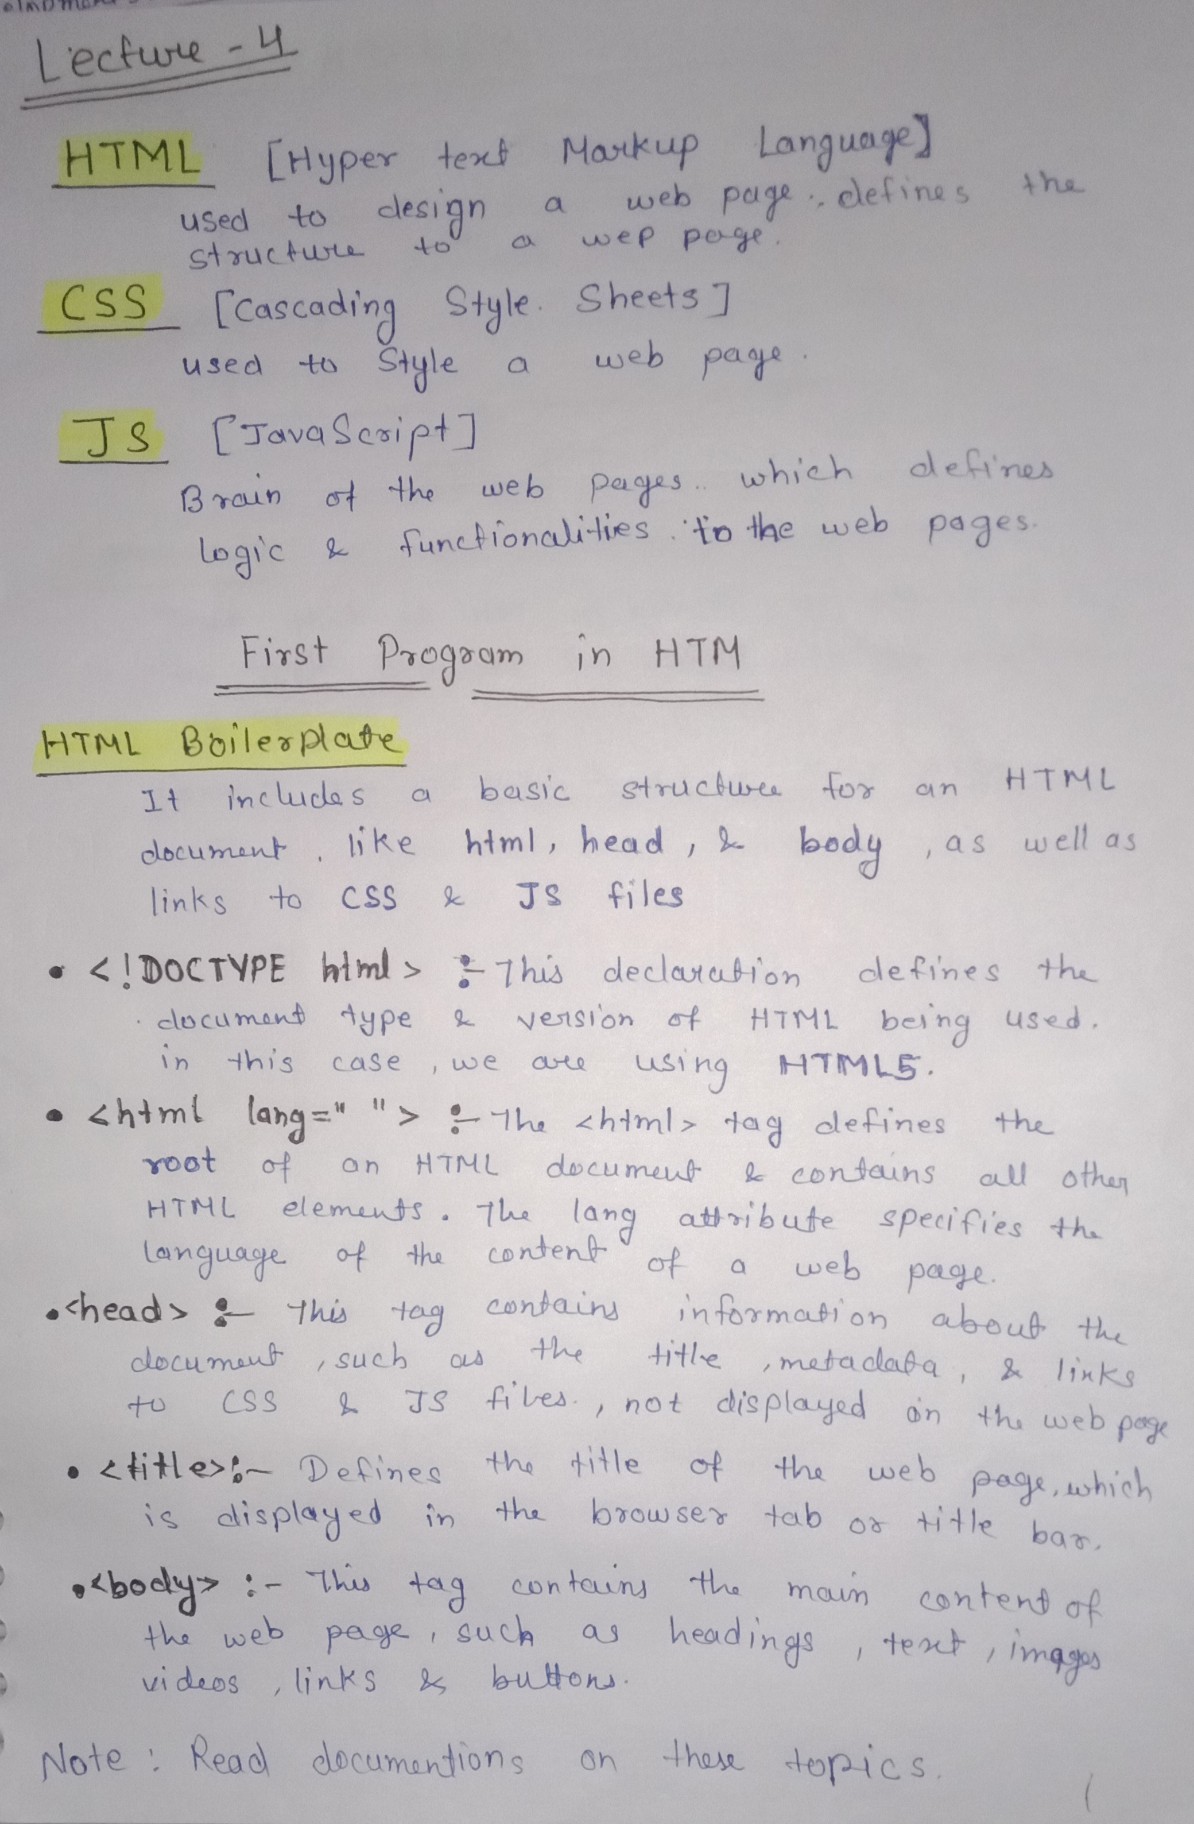 Lecture - 4
HTML [Hyper text Markup Language]
used to design a web page., defines the
structure to a wep page.
CSS [Cascading Style. Sheets]
used to Style a web page.
JS [JavaScript]
Brain of the web pages.. which defines
logic & functionalities. to the web pages.
First Program in HTM
HTML Boilerplate
It includes a basic structure for an HTML
document, like html, head, & body, as well as
links to CSS & JS files
• <!DOCTYPE html> :- This declaration defines the
document type & version of HTML being used.
in this case, we are using HTML5.
• <html lang=" "> :- The <html> tag defines the
root of an HTML document & contains all other
HTML elements. The lang attribute specifies the
language of the content of a web page.
• <head> :- This tag contains information about the
document, such as the title, metadata, & links
to CSS & JS files., not displayed on the web page
• <title> :- Defines the title of the web page, which
is displayed in the browser tab or title bar.
• <body> :- This tag contains the main content of
the web page, such as headings, text, images
videos, links & buttons.
Note : Read documentions on these topics.